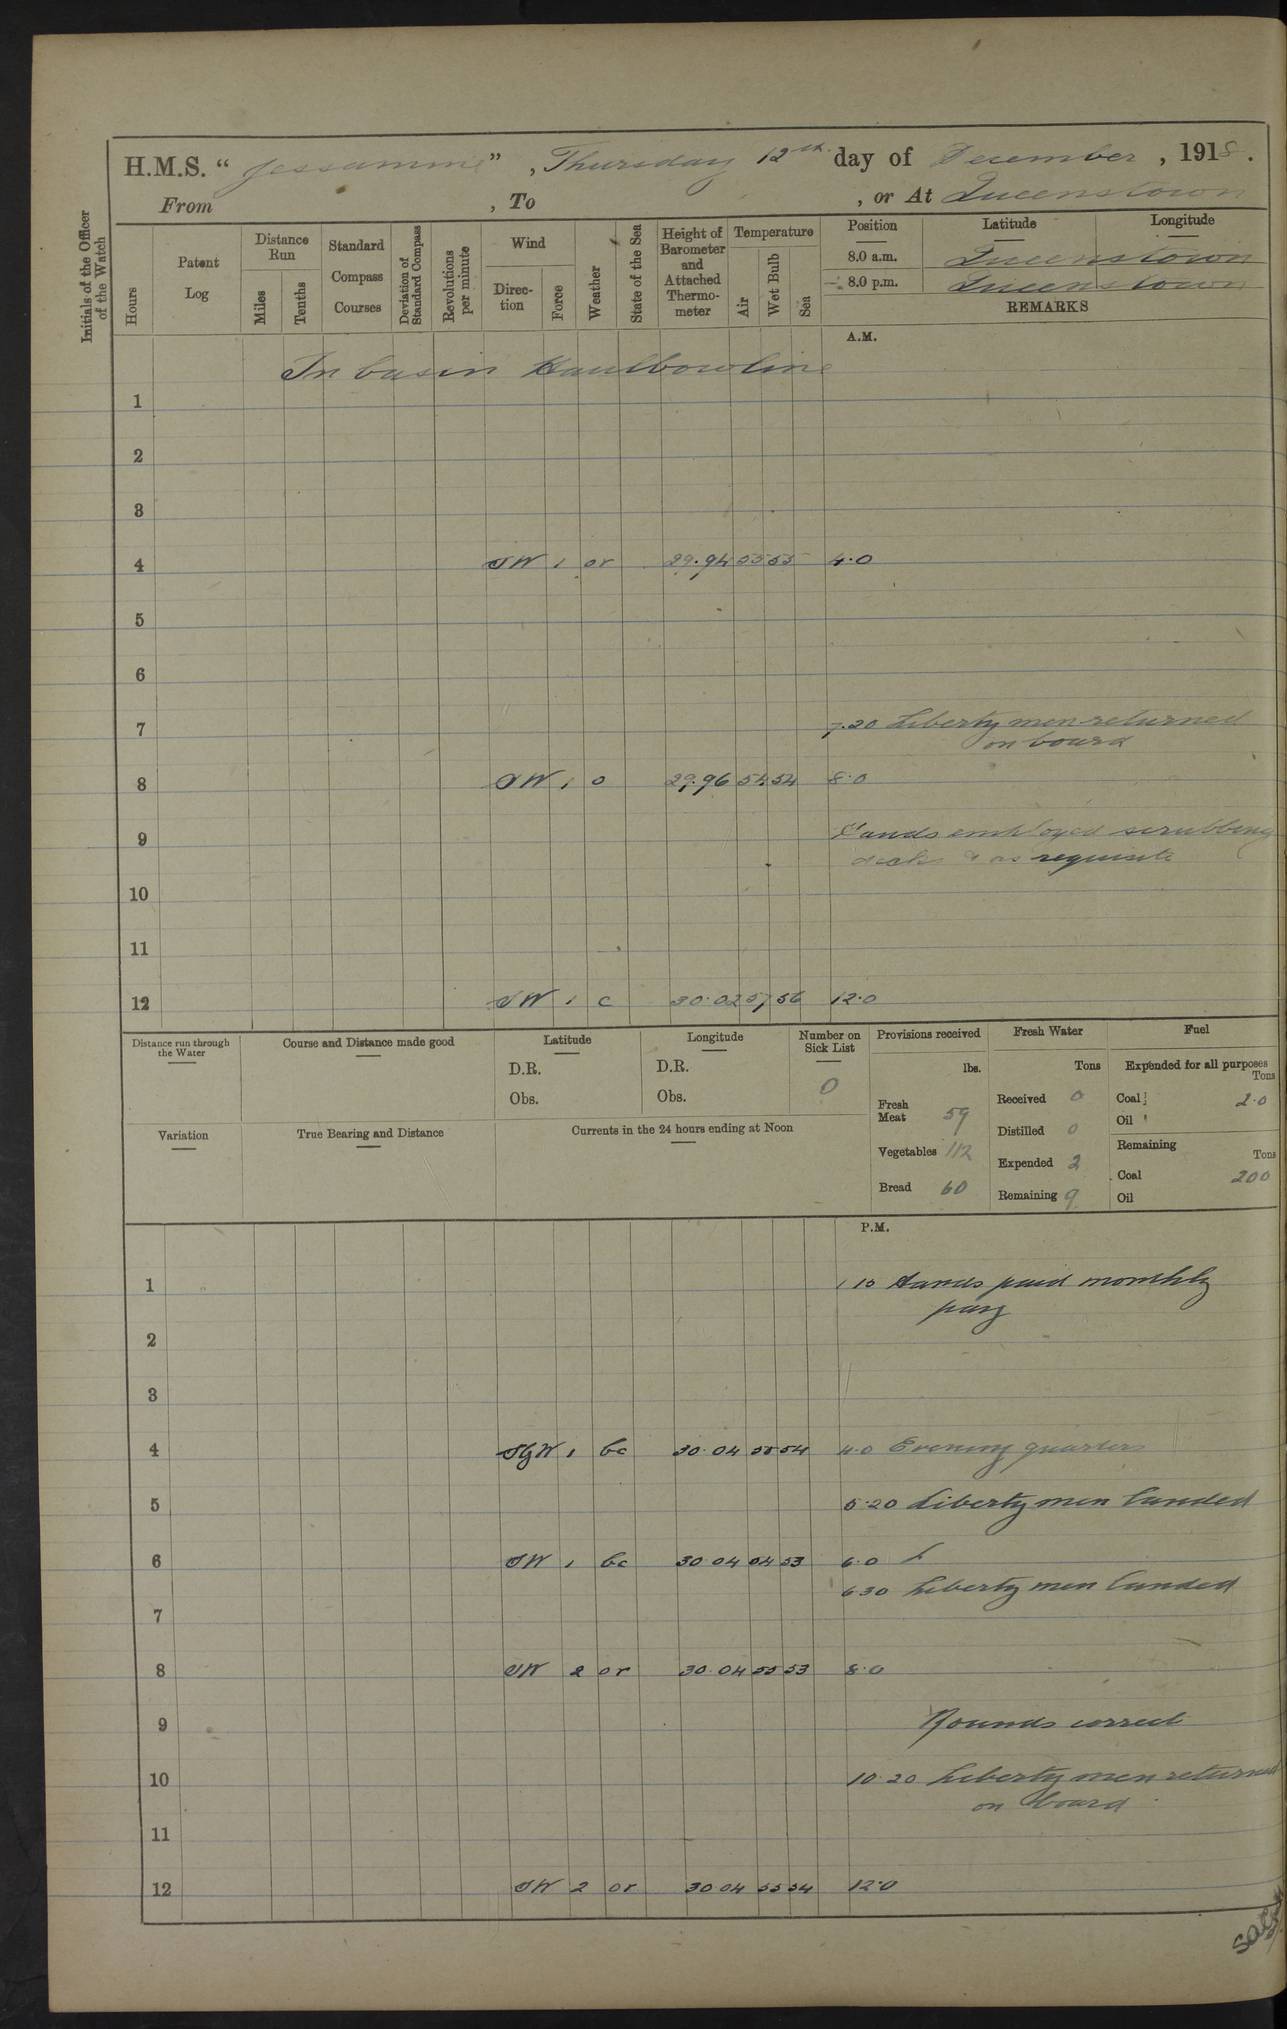 H.M.S. “ Jessamine ” , Thursday 12th day of December , 1918 .
From , To , or At Queenstown
Initials of the Officer of the Watch
Hours
Patent Log
Distance Run
Miles Tenths
Standard Compass Courses
Deviation of Standard Compass
Revolutions per minute
Wind
Direc-tion Force
Weather
State of the Sea
Height of Barometer and Attached Thermo-meter
Temperature
Air Wet Bulb Sea
Position Latitude Longitude
8.0 a.m. Queenstown
8.0 p.m. Queenstown
REMARKS
A.M.
In basin Haulbowline
1
2
3
4 SW 1 or 29.94 55 55 4.0
5
6
7 7.20 Liberty men returned
on board
8 SW 1 o 29.96 54 54 8.0
9 Hands employed scrubbing
decks & as requisite
10
11
12 SW 1 c 30.02 57 56 12.0
Distance run through the Water
Course and Distance made good
Latitude
D.R.
Obs.
Longitude
D.R.
Obs.
Number on Sick List
0
Variation
True Bearing and Distance
Currents in the 24 hours ending at Noon
Provisions received
lbs.
Fresh Meat 59
Vegetables 112
Bread 60
Fresh Water
Tons
Received 0
Distilled 0
Expended 2
Remaining 9
Fuel
Expended for all purposes
Tons
Coal 2.0
Oil
Remaining
Tons
Coal 200
Oil
P.M.
1 1 10 Hands paid monthly
pay
2
3
4 SbyW 1 bc 30.04 55 54 4.0 Evening quarters
5 5.20 Liberty men landed
6 SW 1 bc 30 04 54 53 6.0 L
6 30 Liberty men landed
7
8 SW 2 or 30.04 55 53 8.0
9 Rounds correct
10 10.20 Liberty men returned
on board
11
12 SW 2 or 30 04 55 54 12.0